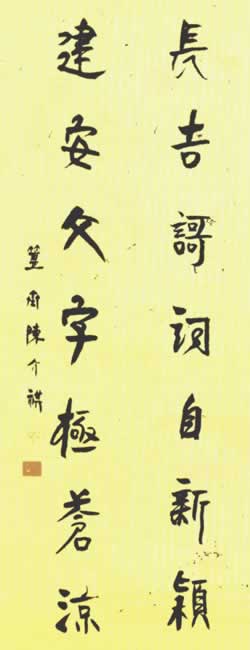 長吉謌詞自新穎
建安文字極蒼涼
簠齋陳介祺